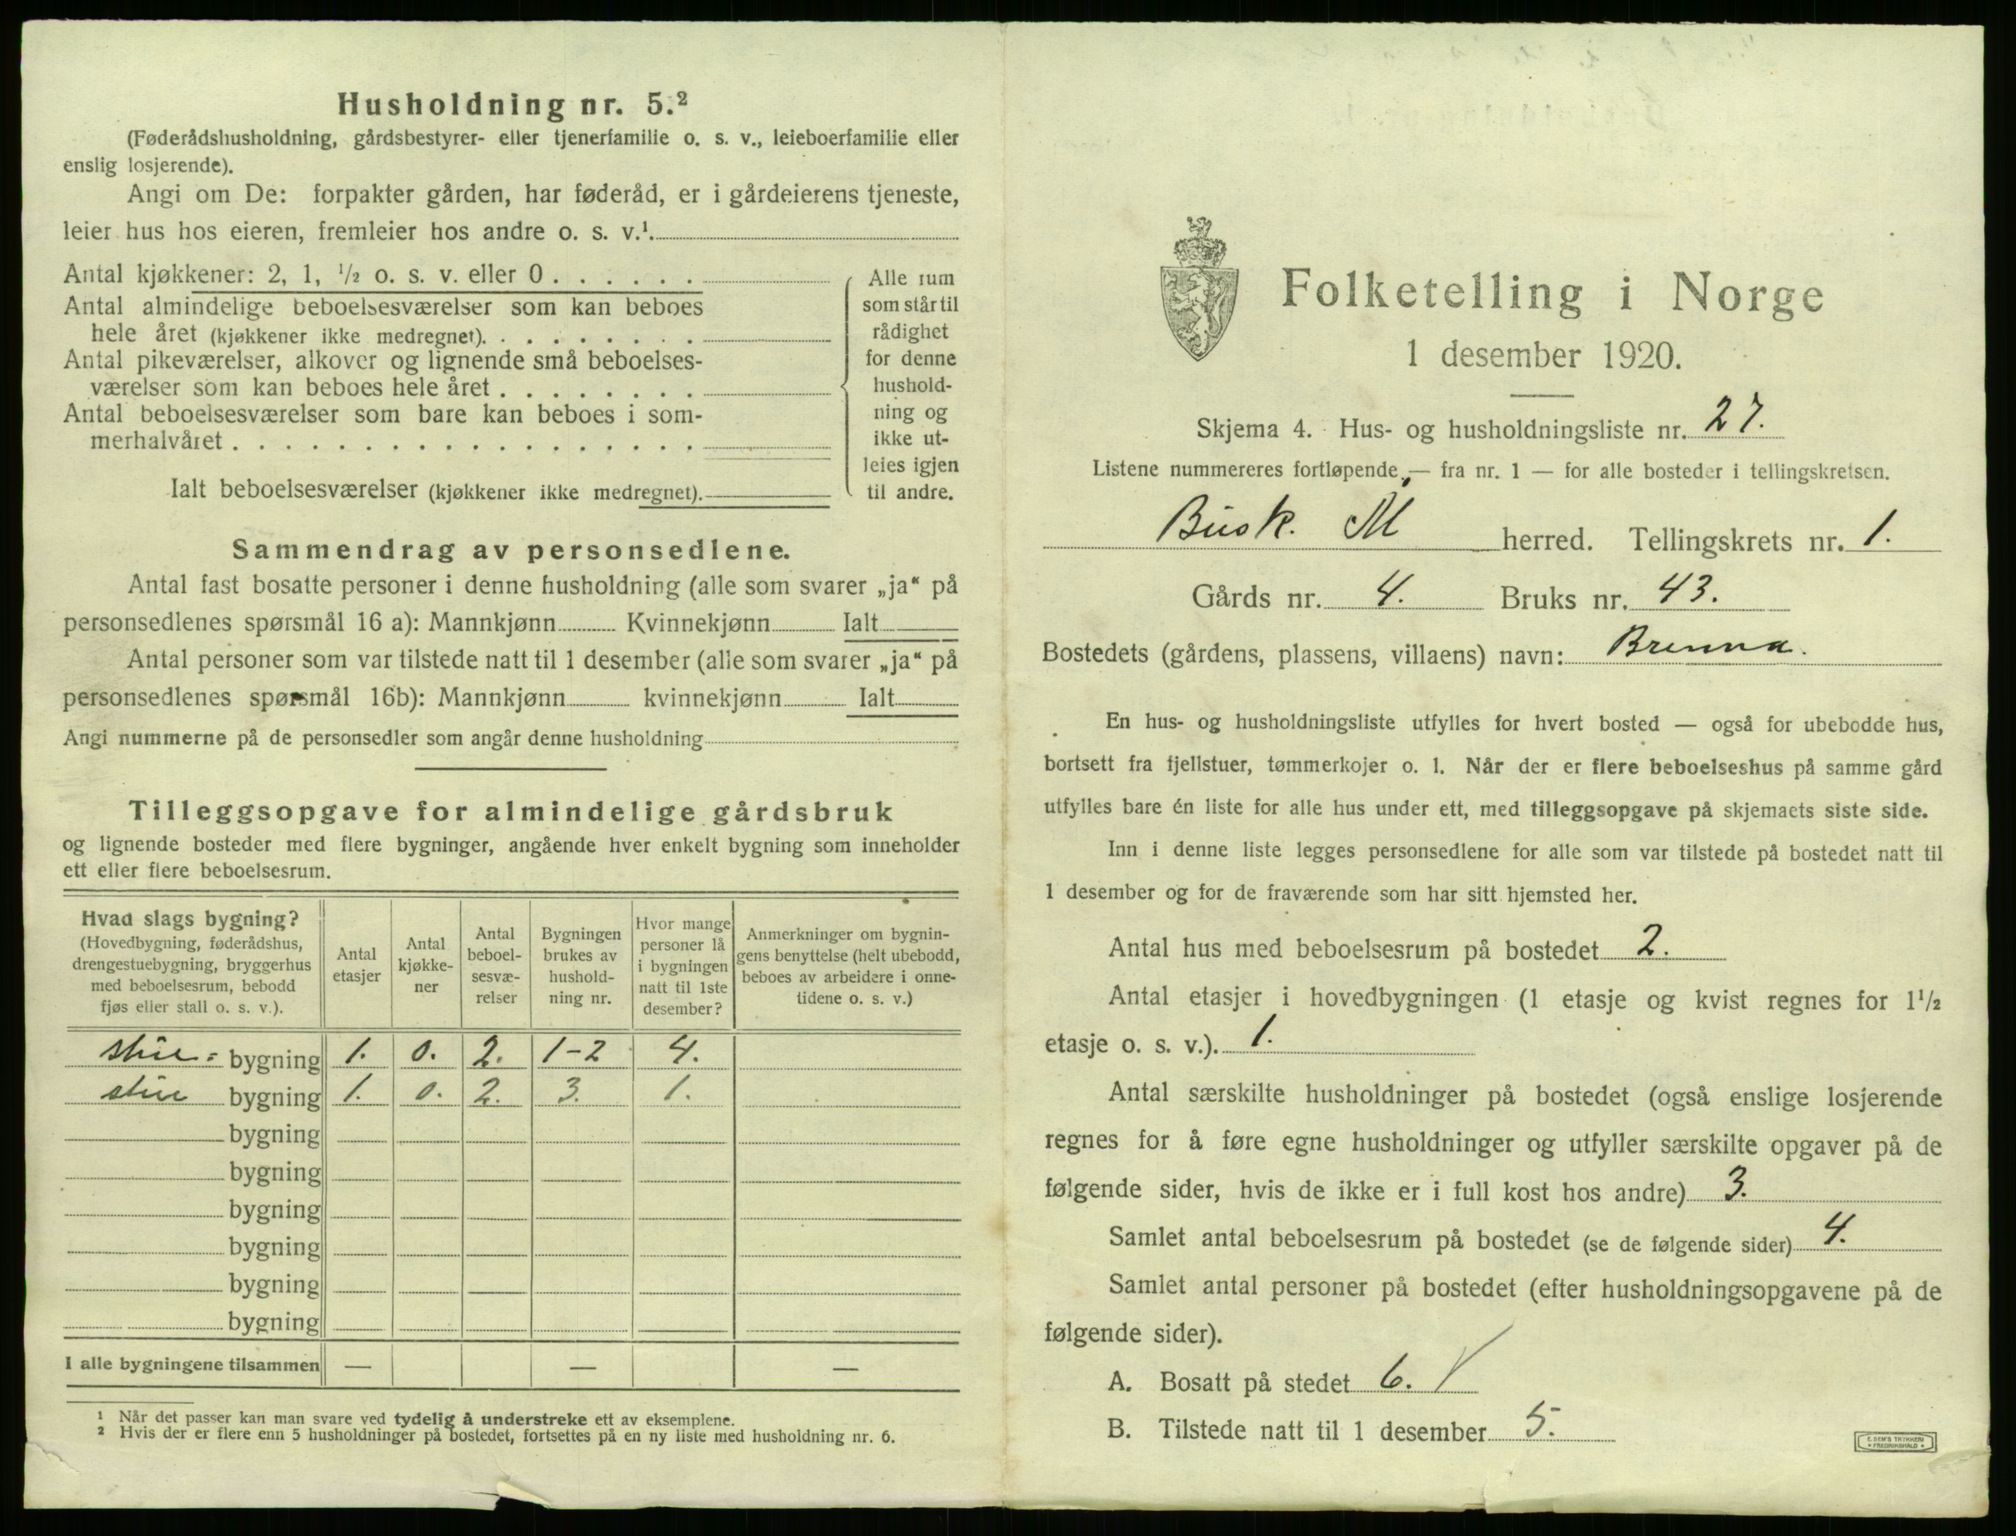 Husholdning nr. 5.²
(Føderådshusholdning, gårdsbestyrer- eller tjenerfamilie o. s. v., leieboerfamilie eller
enslig losjerende).
Angi om De: forpakter gården, har føderåd, er i gårdeierens tjeneste,
leier hus hos eieren, fremleier hos andre o. s. v.¹
Antal kjøkkener: 2, 1, ½ o. s. v. eller 0 . . . . . .
Antal almindelige beboelsesværelser som kan beboes
hele året (kjøkkener ikke medregnet). . . . . . . . .
Antal pikeværelser, alkover og lignende små beboelses-
værelser som kan beboes hele året . . . . . . . .
Antal beboelsesværelser som bare kan beboes i som-
merhalvåret . . . . . . . . . . . . . . . . . .
Ialt beboelsesværelser (kjøkkener ikke medregnet).
Alle rum
som står til
rådighet
for denne
hushold-
ning og
ikke ut-
leies igjen
til andre.
Sammendrag av personsedlene.
Antal fast bosatte personer i denne husholdning (alle som svarer „ja“ på
personsedlenes spørsmål 16 a): Mannkjønn Kvinnekjønn Ialt
Antal personer som var tilstede natt til 1 desember (alle som svarer „ja“ på
personsedlenes spørsmål 16b): Mannkjønn kvinnekjønn Ialt
Angi nummerne på de personsedler som angår denne husholdning
Tilleggsopgave for almindelige gårdsbruk
og lignende bosteder med flere bygninger, angående hver enkelt bygning som inneholder
ett eller flere beboelsesrum.
Hvad slags bygning?
(Hovedbygning, føderådshus,
drengestuebygning, bryggerhus
med beboelsesrum, bebodd
fjøs eller stall o. s. v.).
Antal
etasjer
Antal
kjøkke-
ner
Antal
beboel-
sesvæ-
relser
Bygningen
brukes av
hushold-
ning nr.
Hvor mange
personer lå
i bygningen
natt til 1ste
desember?
Anmerkninger om bygnin-
gens benyttelse (helt ubebodd,
beboes av arbeidere i onne-
tidene o. s. v.)
stue- bygning 1. 0. 2. 1-2 4.
stue bygning 1. 0. 2. 3. 1.
bygning
bygning
bygning
bygning
bygning
bygning
I alle bygningene tilsammen — — —
¹ Når det passer kan man svare ved tydelig å understreke ett av eksemplene.
² Hvis der er flere enn 5 husholdninger på bostedet, fortsettes på en ny liste med husholdning nr. 6.
Folketelling i Norge
1 desember 1920.
Skjema 4. Hus- og husholdningsliste nr. 27.
Listene nummereres fortløpende — fra nr. 1 — for alle bosteder i tellingskretsen.
Busk. M herred. Tellingskrets nr. 1.
Gårds nr. 4. Bruks nr. 43.
Bostedets (gårdens, plassens, villaens) navn: Brenna.
En hus- og husholdningsliste utfylles for hvert bosted — også for ubebodde hus,
bortsett fra fjellstuer, tømmerkojer o. l. Når der er flere beboelseshus på samme gård
utfylles bare én liste for alle hus under ett, med tilleggsopgave på skjemaets siste side.
Inn i denne liste legges personsedlene for alle som var tilstede på bostedet natt til
1 desember og for de fraværende som har sitt hjemsted her.
Antal hus med beboelsesrum på bostedet 2.
Antal etasjer i hovedbygningen (1 etasje og kvist regnes for 1½
etasje o. s. v.). 1.
Antal særskilte husholdninger på bostedet (også enslige losjerende
regnes for å føre egne husholdninger og utfyller særskilte opgaver på de
følgende sider, hvis de ikke er i full kost hos andre) 3.
Samlet antal beboelsesrum på bostedet (se de følgende sider) 4.
Samlet antal personer på bostedet (efter husholdningsopgavene på de
følgende sider).
A. Bosatt på stedet 6.
B. Tilstede natt til 1 desember 5.
E. SEM'S TRYKKERI
FREDRIKSHALD